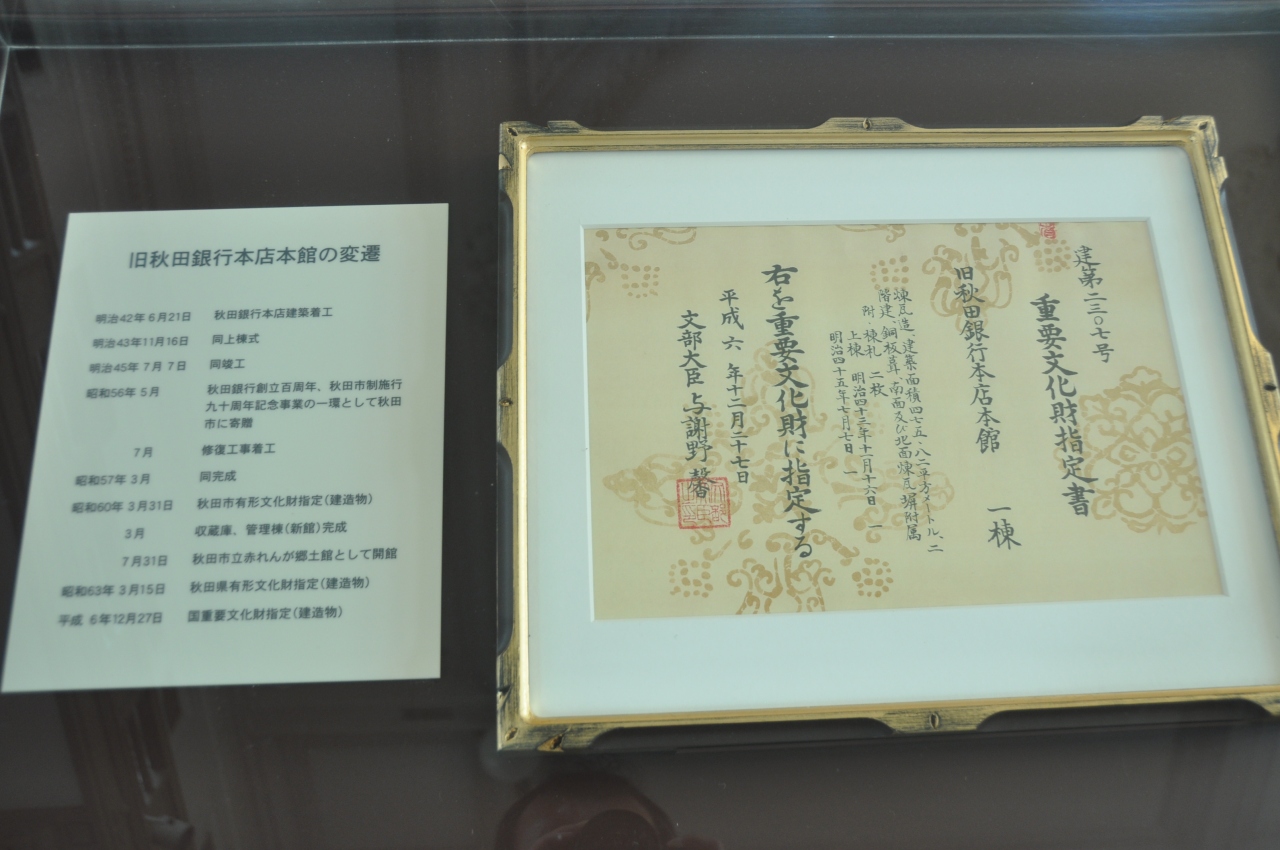 旧秋田銀行本店本館の変遷
明治42年 6月21日 秋田銀行本店建築着工
明治43年11月16日 同上棟式
明治45年 7月 7日 同竣工
昭和56年 5月 秋田銀行創立百周年、秋田市制施行
九十周年記念事業の一環として秋田
市に寄贈
7月 修復工事着工
昭和57年 3月 同完成
昭和60年 3月31日 秋田市有形文化財指定(建造物)
3月 収蔵庫、管理棟(新館)完成
7月31日 秋田市立赤れんが郷土館として開館
昭和63年 3月15日 秋田県有形文化財指定(建造物)
平成 6年12月27日 国重要文化財指定(建造物)
建第二三〇七号
重要文化財指定書
旧秋田銀行本店本館 一棟
煉瓦造、建築面積四七五・八二平方メートル、二
階建、銅板葺、南面及び北面煉瓦塀附属
附・棟札 二枚
上棟 明治四十三年十一月十六日 一
明治四十五年七月七日 一
右を重要文化財に指定する
平成六年十二月二十七日
文部大臣 与謝野馨